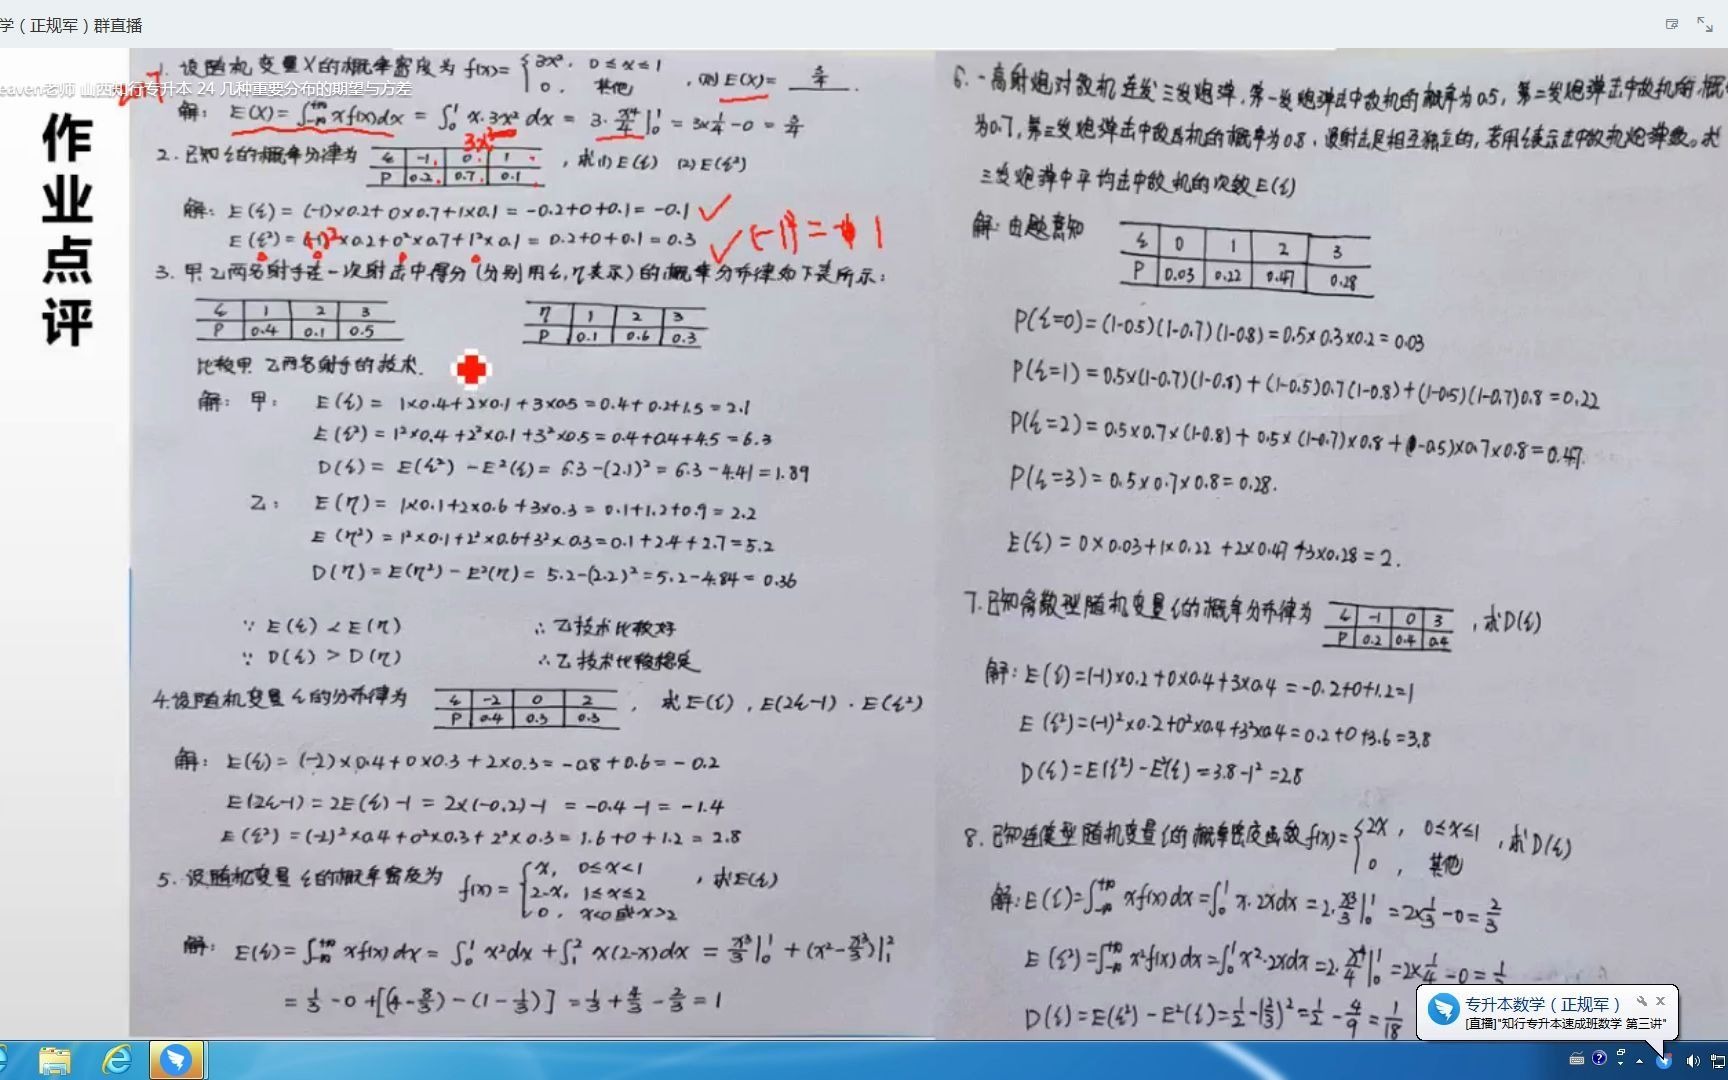 学（正规军）群直播
eaven老师 山西知行专升本 24 几种重要分布的期望与方差
作业点评
1. 设随机变量X的概率密度为 f(x)= {3x², 0≤x≤1
0, 其他 ,则E(X)= 3/4 .
解: E(X)=∫_{-∞}^{+∞} xf(x)dx = ∫_0^1 x·3x² dx = 3·x⁴/4|_0^1 = 3×1/4-0 = 3/4
3x³
2. 已知ξ的概率分布律为
ξ -1 0 1
P 0.2 0.7 0.1
, 求(1)E(ξ) (2)E(ξ²)
解: E(ξ) = (-1)×0.2+0×0.7+1×0.1 = -0.2+0+0.1 = -0.1
E(ξ²) = (-1)²×0.2+0²×0.7+1²×0.1 = 0.2+0+0.1 = 0.3
(-1)² = 1
3. 甲乙两名射手在一次射击中得分(分别用ξ,η表示)的概率分布律如下表所示:
ξ 1 2 3
P 0.4 0.1 0.5
η 1 2 3
P 0.1 0.6 0.3
比较甲乙两名射手的技术.
解: 甲: E(ξ) = 1×0.4+2×0.1+3×0.5=0.4+0.2+1.5=2.1
E(ξ²) = 1²×0.4+2²×0.1+3²×0.5=0.4+0.4+4.5=6.3
D(ξ) = E(ξ²)-E²(ξ) = 6.3-(2.1)²=6.3-4.41=1.89
乙: E(η) = 1×0.1+2×0.6+3×0.3=0.1+1.2+0.9=2.2
E(η²)=1²×0.1+2²×0.6+3²×0.3=0.1+2.4+2.7=5.2
D(η)=E(η²)-E²(η)= 5.2-(2.2)²=5.2-4.84=0.36
∵ E(ξ)<E(η) ∴乙技术比较好
∵ D(ξ)>D(η) ∴乙技术比较稳定
4. 设随机变量ξ的分布律为
ξ -2 0 2
P 0.4 0.3 0.3
, 求E(ξ), E(2ξ-1). E(ξ²)
解: E(ξ) = (-2)×0.4+0×0.3+2×0.3=-0.8+0.6=-0.2
E(2ξ-1)=2E(ξ)-1 = 2×(-0.2)-1 = -0.4-1 = -1.4
E(ξ²)=(-2)²×0.4+0²×0.3+2²×0.3=1.6+0+1.2=2.8
5. 设随机变量ξ的概率密度为 f(x) = {x, 0≤x<1
2-x, 1≤x≤2
0, x<0或x>2
, 求E(ξ)
解: E(ξ)=∫_{-∞}^{+∞} xf(x)dx=∫_0^1 x²dx+∫_1^2 x(2-x)dx = x³/3|_0^1 + (x²-x³/3)|_1^2
= 1/3-0+[(4-8/3)-(1-1/3)] = 1/3+4/3-2/3=1
6. 一高射炮对敌机连发三发炮弹, 第一发炮弹击中敌机的概率为0.5, 第二发炮弹击中敌机的概
为0.7, 第三发炮弹击中敌机的概率为0.8, 设射击是相互独立的, 若用ξ表示击中敌机炮弹数。求
三发炮弹中平均击中敌机的次数E(ξ)
解: 由题意知
ξ 0 1 2 3
P 0.03 0.22 0.47 0.28
P(ξ=0)=(1-0.5)(1-0.7)(1-0.8)=0.5×0.3×0.2=0.03
P(ξ=1)=0.5×(1-0.7)(1-0.8)+(1-0.5)0.7(1-0.8)+(1-0.5)(1-0.7)0.8=0.22
P(ξ=2)=0.5×0.7×(1-0.8)+0.5×(1-0.7)×0.8+(1-0.5)×0.7×0.8=0.47.
P(ξ=3)=0.5×0.7×0.8=0.28.
E(ξ)=0×0.03+1×0.22+2×0.47+3×0.28=2.
7. 已知离散型随机变量ξ的概率分布律为
ξ -1 0 3
P 0.2 0.4 0.4
, 求D(ξ)
解: E(ξ)=(-1)×0.2+0×0.4+3×0.4=-0.2+0+1.2=1
E(ξ²)=(-1)²×0.2+0²×0.4+3²×0.4=0.2+0+3.6=3.8
D(ξ)=E(ξ²)-E²(ξ)=3.8-1²=2.8
8. 已知连续型随机变量ξ的概率密度函数f(x)= {2x, 0≤x≤1
0, 其他
, 求D(ξ)
解: E(ξ)=∫_{-∞}^{+∞} xf(x)dx=∫_0^1 x·2xdx=2·x³/3|_0^1=2×1/3-0=2/3
E(ξ²)=∫_{-∞}^{+∞} x²f(x)dx=∫_0^1 x²·2xdx=2·x⁴/4|_0^1=2×1/4-0=1/2
D(ξ)=E(ξ²)-E²(ξ)=1/2-(2/3)²=1/2-4/9=1/18
专升本数学（正规军）
[直播]"知行专升本速成班数学 第三讲"